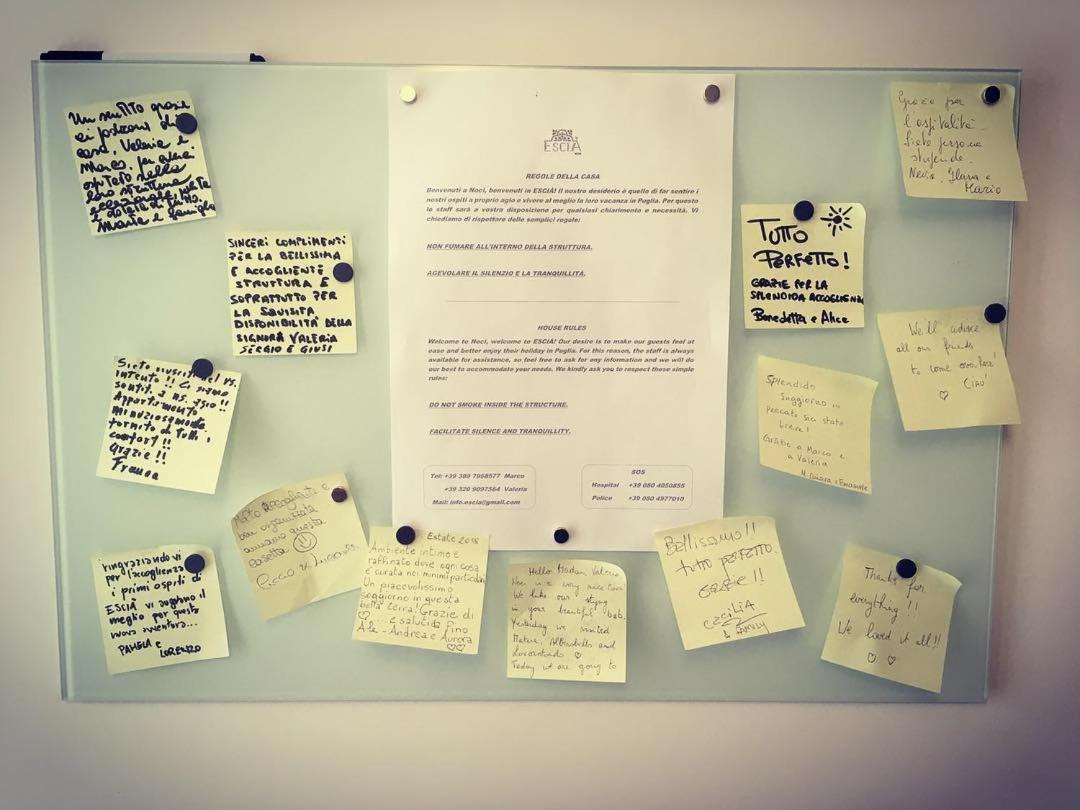 Un sentito grazie
ai padroni di
casa, Valeria e
Marco, per averci
ospitato nella
loro struttura
eccezionale,
Maria e famiglia
SINCERI COMPLIMENTI
PER LA BELLISSIMA
E ACCOGLIENTE
STRUTTURA E
SOPRATTUTTO PER
LA SQUISITA
DISPONIBILITÀ DELLA
SIGNORA VALERIA
SERGIO E GIUSI
Siete riusciti nel vs.
intento!! Ci siamo
sentiti a ns. agio!!
Appartamento
minuziosamente
fornito di tutti i
comfort!!
Grazie!!
Franca
Molto accogliente e
ben organizzata
amiamo questa
casetta
Ringraziandovi
per l'accoglienza
i primi ospiti di
ESCIÀ vi augurano il
meglio per questa
nuova avventura...
PAMELA E
LORENZO
ESCIÀ
REGOLE DELLA CASA
Benvenuti a Noci, benvenuti in ESCIÀ! Il nostro desiderio è quello di far sentire i
nostri ospiti a proprio agio e vivere al meglio la loro vacanza in Puglia. Per questo
lo staff sarà a vostra disposizione per qualsiasi chiarimento e necessità. Vi
chiediamo di rispettare delle semplici regole:
NON FUMARE ALL'INTERNO DELLA STRUTTURA.
AGEVOLARE IL SILENZIO E LA TRANQUILLITÀ.
HOUSE RULES
Welcome to Noci, welcome to ESCIÀ! Our desire is to make our guests feel at
ease and better enjoy their holiday in Puglia. For this reason, the staff is always
available for assistance, so feel free to ask for any information and we will do
our best to accommodate your needs. We kindly ask you to respect these simple
rules:
DO NOT SMOKE INSIDE THE STRUCTURE.
FACILITATE SILENCE AND TRANQUILLITY.
Tel: +39 389 7958577 Marco
+39 320 9097564 Valeria
Mail: info.escia@gmail.com
SOS
Hospital +39 080 4050855
Police +39 080 4977010
Estate 2018
Ambiente intimo e
raffinato dove ogni cosa
è curata nei minimi particolari
Un piacevolissimo
soggiorno in questa
bella terra! Grazie di
♡ ... e salutida Fino
Ale - Andrea e Aurora
♡♡
Hello Madam Valeria
Now is a very nice time
We like our staying
in your beautiful b&b.
Yesterday we visited
Matera, Alberobello and
Locorotondo ♡
Today we are going to
Bellissimo!!
tutto PERFETTO.
GRAZIE!!
CECILIA
& family
Grazie per
l'ospitalità
Siete persone
stupende.
Nevia, Ilaria e
Mario
TUTTO
PERFETTO!
GRAZIE PER LA
SPLENDIDA ACCOGLIENZA
Benedetta e Alice
We'll advise
all our friends
to come over here!
Ciao!
♡
Splendido
Soggiorno...
Peccato sia stato
breve!
Grazie a Marco e
a Valeria
M. Chiara e Emanuele
Thanks for
everything!!
We loved it all!!
♡ ♡